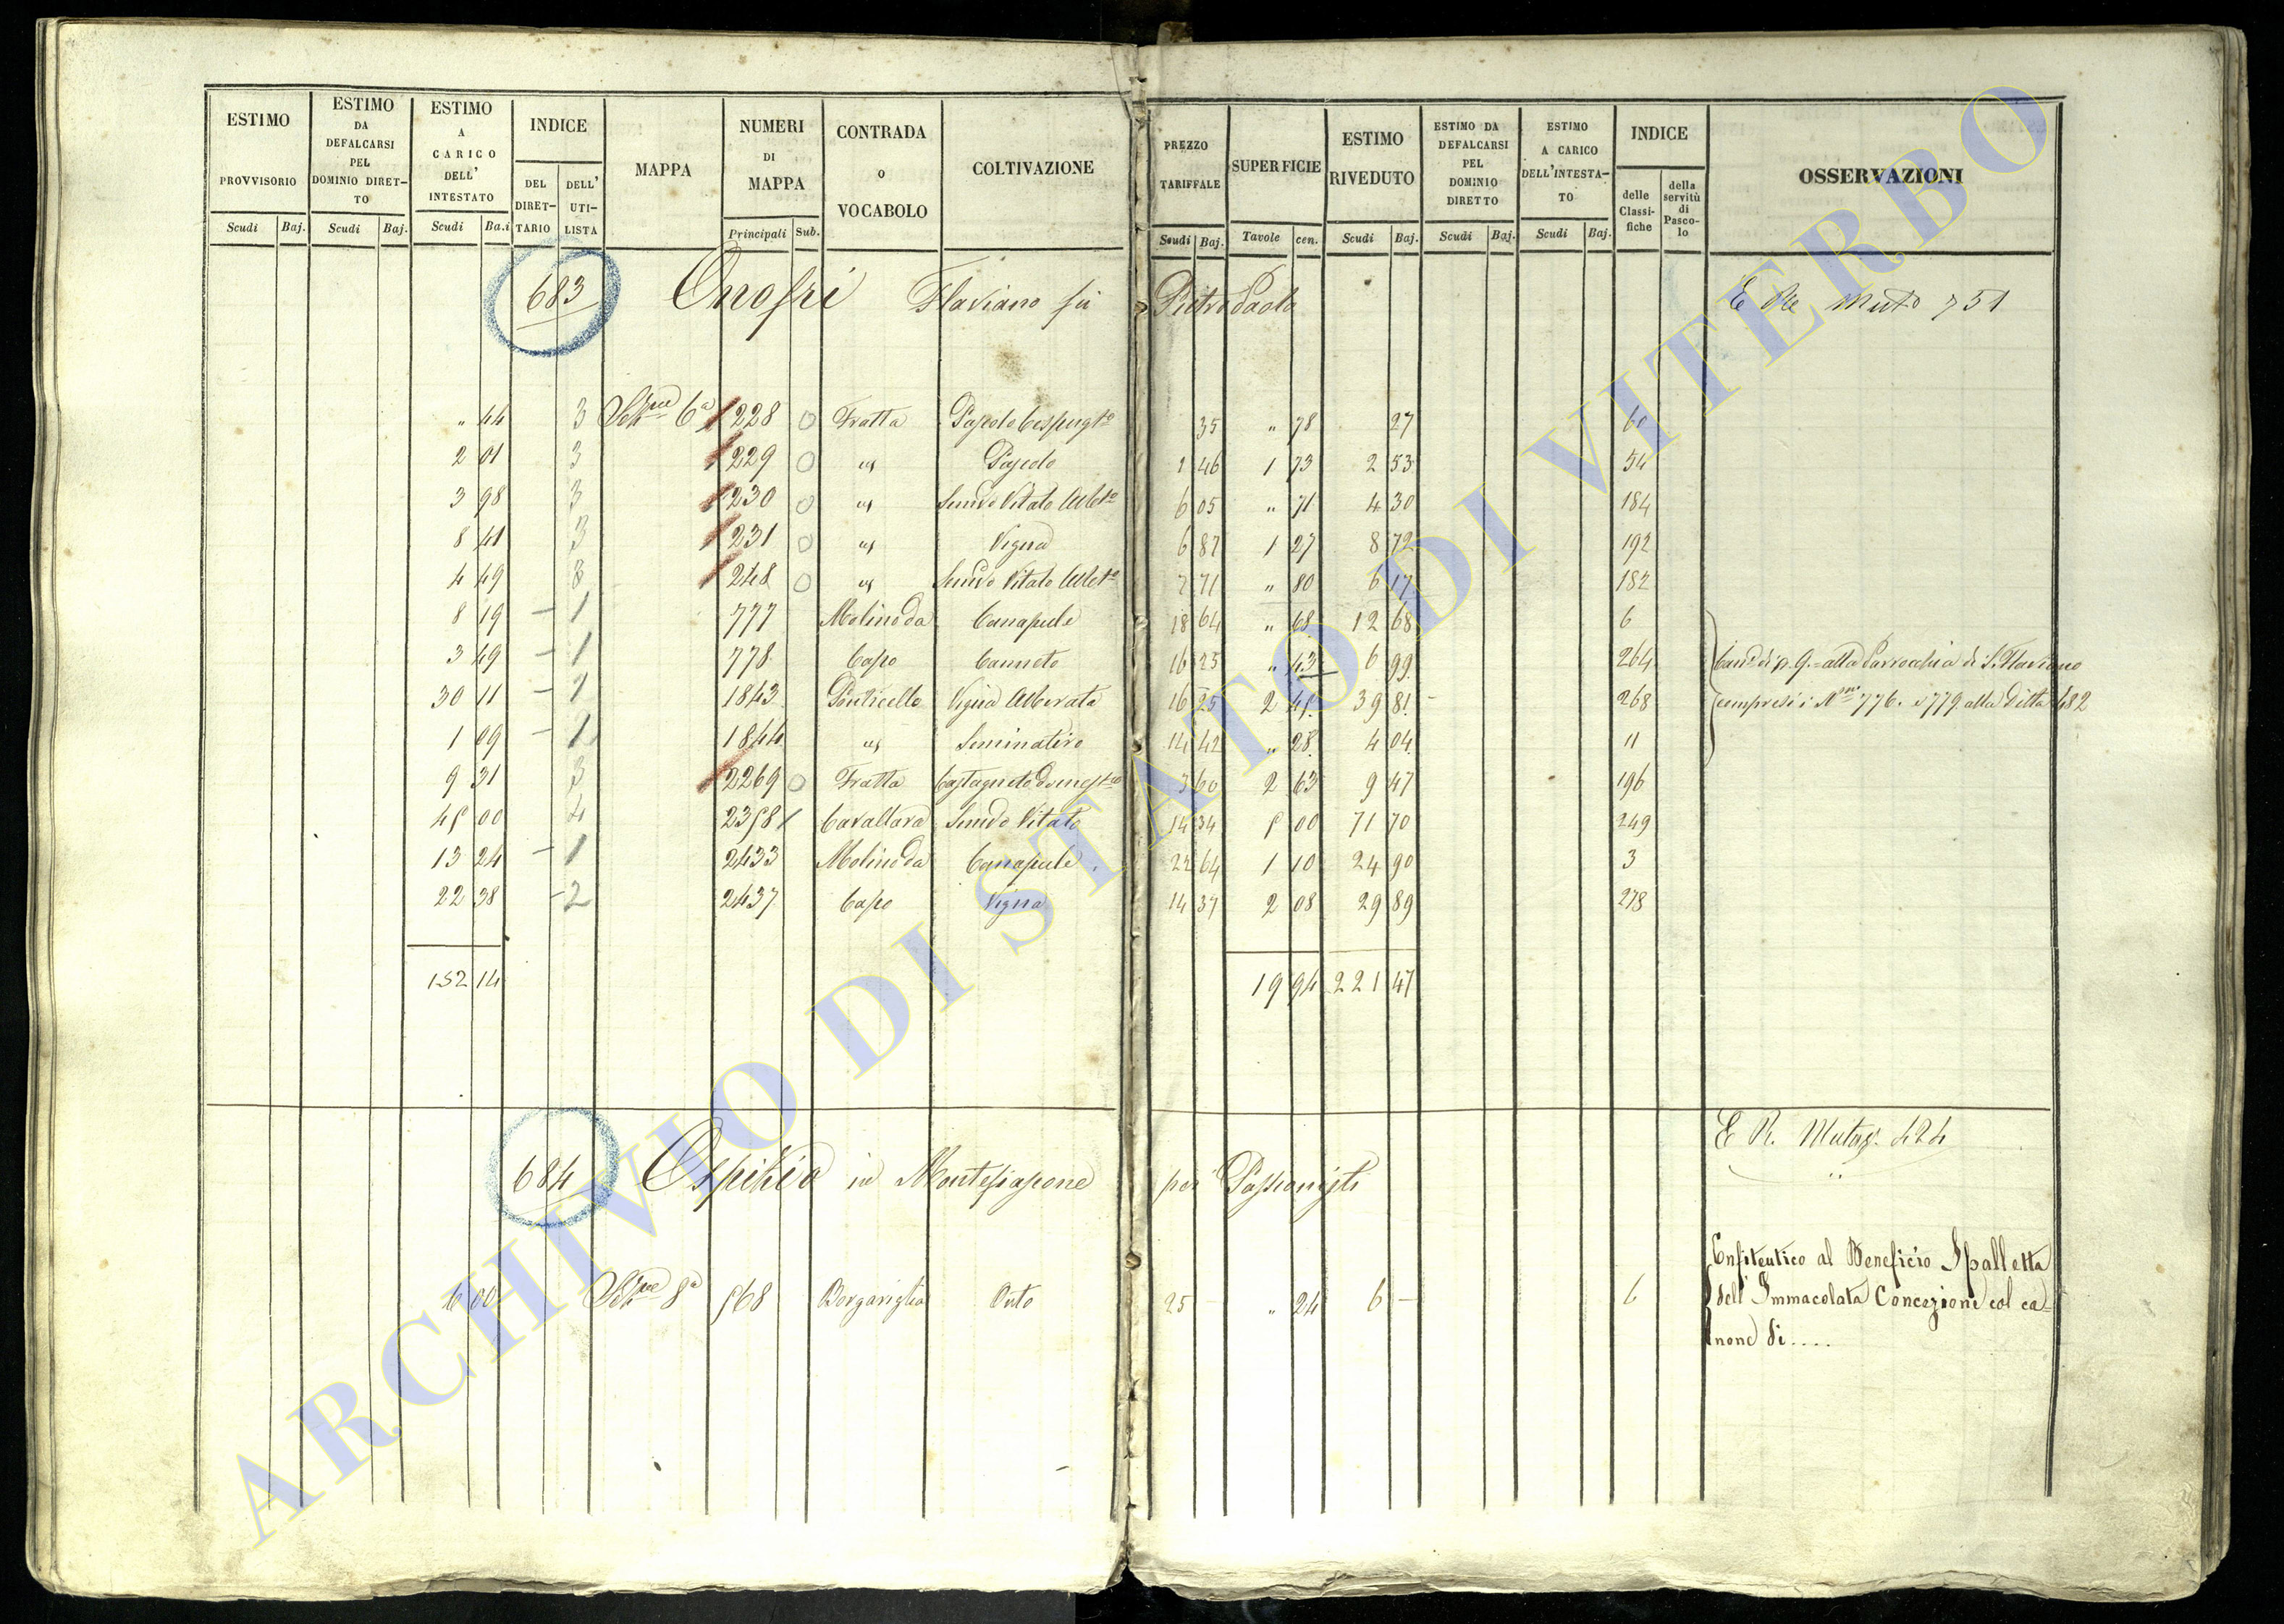 ESTIMO PROVVISORIO Scudi Baj.
ESTIMO DA DEFALCARSI PEL DOMINIO DIRET- TO Scudi Baj.
ESTIMO A CARICO DELL' INTESTATO Scudi Ba.i
INDICE DEL DIRET- TARIO DELL' UTI- LISTA
MAPPA
NUMERI DI MAPPA Principali Sub.
CONTRADA o VOCABOLO
COLTIVAZIONE
PREZZO TARIFFALE Scudi Baj.
SUPERFICIE Tavole cen.
ESTIMO RIVEDUTO Scudi Baj.
ESTIMO DA DEFALCARSI PEL DOMINIO DIRETTO Scudi Baj.
ESTIMO A CARICO DELL'INTESTA- TO Scudi Baj.
INDICE delle Classi- fiche della servitù di Pasco- lo
OSSERVAZIONI
683 Onofri Flaviano fu Pietro Paolo
„ 44 3 Sez.ne 6a 228 0 Fratta Pascolo Cespugto 35 „ 78 27 60
2 01 3 229 0 Pascolo 1 46 1 73 2 53 54
3 98 3 230 0 Semvo Vitato Albto 6 05 „ 71 4 30 184
8 41 3 231 0 Vigna 6 87 1 27 8 72 192
4 49 3 248 0 Semvo Vitato Albto 7 71 „ 80 6 17 182
8 19 – 1 777 Molino da Canapule 18 64 „ 68 12 68 6
3 49 – 1 778 Capo Canneto 16 25 „ 43 6 99 264
30 11 – 1 1843 Ponticello Vigna Alberata 16 25 2 45 39 81 268
1 09 – 1 1844 Seminativo 14 42 „ 28 4 04 11
9 31 3 2269 0 Fratta Castagneto Domestco 3 60 2 63 9 47 196
45 00 4 2358 1 Cavallara Semvo Vitato 14 34 5 00 71 70 249
13 24 – 1 2433 Molino da Canapule 22 64 1 10 24 90 3
22 38 – 2 2437 Capo Vigna 14 37 2 08 29 89 278
152 14 19 94 221 47
E Re Muto 751
alla Parrocchia di S. Flaviano
compresi i N.mi 776. e 779. alla Ditta 482
684 Ospizio in Montefiascone per Passionisti
6 00 Sez.ne 8a 568 Borgariglia Orto 25 – „ 24 6 – 6
E R. Mutaz. 424
Enfiteutico al Beneficio Spalletta
dell'Immacolata Concezione col ca-
none di....
ARCHIVIO DI STATO DI VITERBO